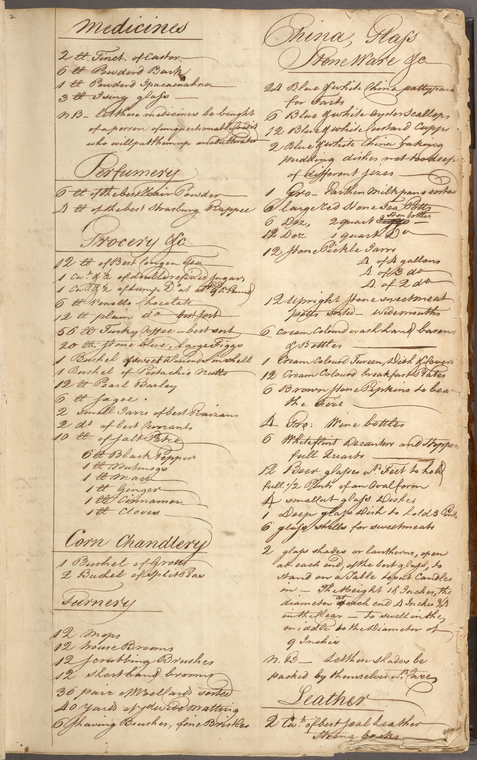 Medicines
2 lb Tinct. of Castor
6 lb Powderd Bark
1 lb Powderd Ipacacuahna
3 lb Ising glass
NB Let these medicines be bought
of a person of unquestionable Credit
who will put them up unadulterated
Perfumery
6 lb of the best Hair Powder
4 lb of the best Strasburg Rappee
Grocery &c
12 lb of Best Congou Tea
1 Cwt. & ½ of double refined Sugar
1 Cwt. & ½ of Lump Do at
6 lb Vanello Chocolate
12 lb plain do
56 lb Turky Coffee best sort
20 lb Stone blue, large Figgs
1 Bushel of sweet Almonds in shell
1 Bushel of Pistachio Nutts
12 lb Pearl Barley
6 lb Sagoe
2 Small Jarrs of best Raisans
2 do of best Currants
10 lb of Salt Petre
6 lb Black Pepper
1 lb Nutmegs
1 lb Mace
1 lb Ginger
1 lb Cinnamon
1 lb Cloves
Corn Chandlery
1 Bushel of Gretts
2 Bushel of Split Peas
Turnery
12 mops
12 house Brooms
12 Scrubbing Brushes
12 Short hand brooms
36 pair of Wool Cards sorted
40 Yards of yd wide Matting
6 Shaving Brushes, fine Bristles
China, Glass
Stone Ware &c
24 Blue & white China pattypans
for Tarts
6 Blue & white Oyster Scallops
12 Blue & white Custard Cupps
2 Blue & white China baking
pudding dishes not too deep
of different sizes
1 Gro. Earthen Milk pans sorted
6 large red Stone Tea Potts
6 Doz. 2 quart Stone bottles
12 Doz 1 quart Do
12 Stone Pickle Jarrs
4 of 4 gallons
4 of 3 do
4 of 2 do
12 Upright Stone sweetmeat
potts sorted wide mouths
6 Cream Colourd wash hand basons
& Bottles
1 Cream Colourd Tureen, Dish & Covers
12 Cream Colourd breakfast Plates
6 Brown Stone Pipkins to bear
the Fire
4 Gro: Wine bottles
6 White flint Decanters and Stoppers
full Quarts
12 Beer glasses wt. Feet to hold
full ½ Pints of an Oval form
4 smallest glass Dishes
1 Deep glass Dish to hold 3 Pints
6 glass Salts for sweetmeats
2 glass shades or lanthorns, open
at each end, of the best glass, to
stand on a Table to put Candles
in The Height 18 Inches, the
diameter at each end 4 Inches ¾
in the clear to swell in the
middle to the Diameter of
9 Inches
N.B. Let these shades be
packed by themselves
Leather
2 Cwt. of best Seal Leather